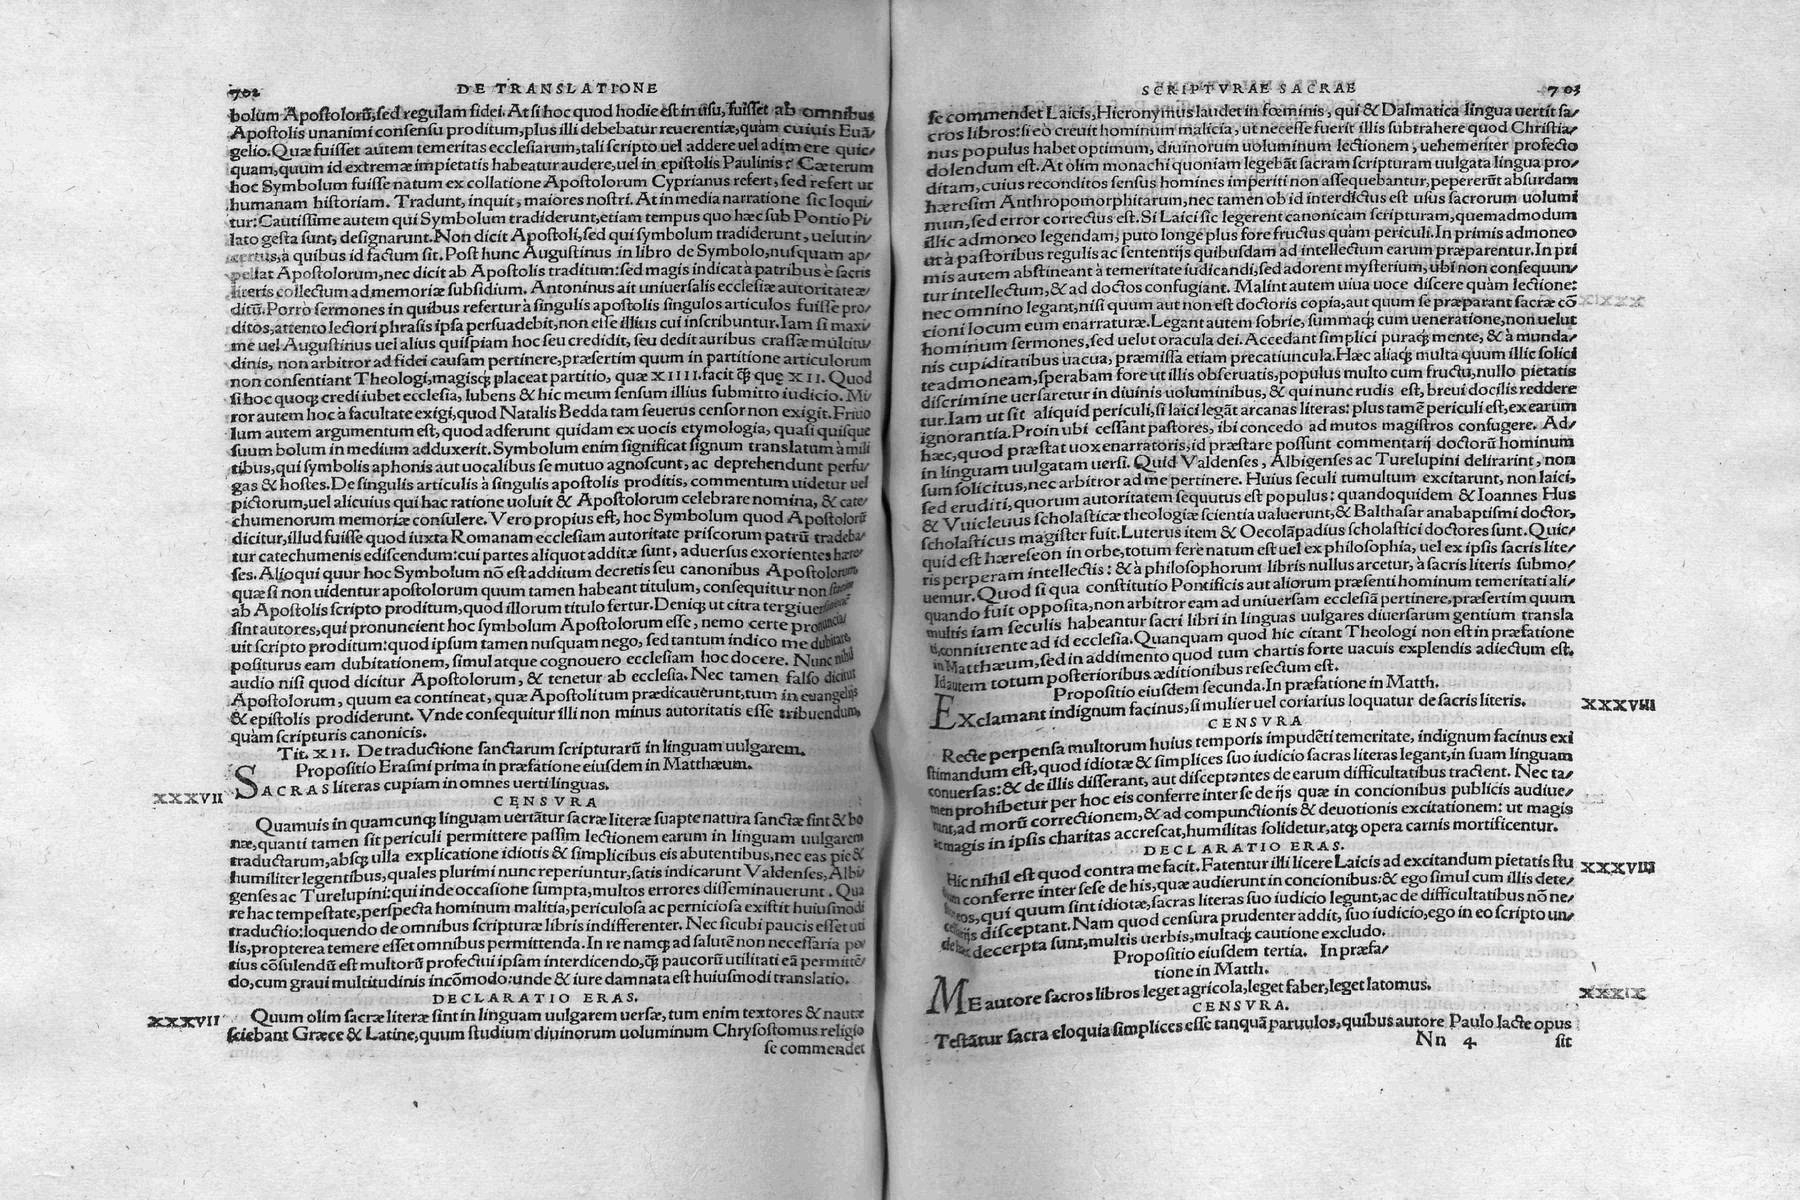 702 DE TRANSLATIONE
bolum Apostolorũ, sed regulam fidei. At si hoc quod hodie est in usu, fuisset ab omnibus
Apostolis unanimi consensu proditum, plus illi debebatur reuerentiæ, quàm cuiuis Euã/
gelio. Quæ fuisset autem temeritas ecclesiarum, tali scripto uel addere uel adimere quic/
quam, quum id extremæ impietatis habeatur audere, uel in epistolis Paulinis? Cæterum
hoc Symbolum fuisse natum ex collatione Apostolorum Cyprianus refert, sed refert ut
humanam historiam. Tradunt, inquit, maiores nostri. At in media narratione sic loqui/
tur: Cautissime autem qui Symbolum tradiderunt, etiam tempus quo hæc sub Pontio Pi/
lato gesta sunt, designarunt. Non dicit Apostoli, sed qui symbolum tradiderunt, uelut in/
certus, à quibus id factum sit. Post hunc Augustinus in libro de Symbolo, nusquam ap/
pellat Apostolorum, nec dicit ab Apostolis traditum: sed magis indicat à patribus è sacris
literis collectum ad memoriæ subsidium. Antoninus ait uniuersalis ecclesiæ autoritate æ/
ditũ. Porrò sermones in quibus refertur à singulis apostolis singulos articulos fuisse pro/
ditos, attento lectori phrasis ipsa persuadebit, non esse illius cui inscribuntur. Iam si maxi/
me uel Augustinus uel alius quispiam hoc seu credidit, seu dedit auribus crassæ multitu/
dinis, non arbitror ad fidei causam pertinere, præsertim quum in partitione articulorum
non consentiant Theologi, magisq́; placeat partitio, quæ XIIII. facit q̃; quę XII. Quod
si hoc quoq; credi iubet ecclesia, lubens & hic meum sensum illius submitto iudicio. Mi/
ror autem hoc à facultate exigi, quod Natalis Bedda tam seuerus censor non exigit. Friuo
lum autem argumentum est, quod adferunt quidam ex uocis etymologia, quasi quisque
suum bolum in medium adduxerit. Symbolum enim significat signum translatum à mili
tibus, qui symbolis aphonis aut uocalibus se mutuo agnoscunt, ac deprehendunt perfu/
gas & hostes. De singulis articulis à singulis apostolis proditis, commentum uidetur uel
pictorum, uel alicuius qui hac ratione uoluit & Apostolorum celebrare nomina, & cate/
chumenorum memoriæ consulere. Vero propius est, hoc Symbolum quod Apostolorũ
dicitur, illud fuisse quod iuxta Romanam ecclesiam autoritate priscorum patrũ tradeba/
tur catechumenis ediscendum: cui partes aliquot additæ sunt, aduersus exorientes hære/
ses. Alioqui quur hoc Symbolum nõ est additum decretis seu canonibus Apostolorum,
quæ si non uidentur apostolorum quum tamen habeant titulum, consequitur non
ab Apostolis scripto proditum, quod illorum titulo fertur. Deniq; ut citra
sint autores, qui pronuncient hoc symbolum Apostolorum esse, nemo certe pronuncia/
uit scripto proditum: quod ipsum tamen nusquam nego, sed tantum indico me dubitare,
positurus eam dubitationem, simul atque cognouero ecclesiam hoc docere. Nunc nihil
audio nisi quod dicitur Apostolorum, & tenetur ab ecclesia. Nec tamen falso dicitur
Apostolorum, quum ea contineat, quæ Apostoli tum prædicauerunt, tum in euangelijs
& epistolis prodiderunt. Vnde consequitur illi non minus autoritatis esse tribuendum,
quàm scripturis canonicis.
Tit. XII. De traductione sanctarum scripturarũ in linguam uulgarem.
Propositio Erasmi prima in præfatione eiusdem in Matthæum.
XXXVII SACRAS literas cupiam in omnes uerti linguas.
CENSVRA
Quamuis in quamcunq; linguam uertãtur sacræ literæ suapte natura sanctæ sint & bo
næ, quanti tamen sit periculi permittere passim lectionem earum in linguam uulgarem
traductarum, absq; ulla explicatione idiotis & simplicibus eis abutentibus, nec eas pie &
humiliter legentibus, quales plurimi nunc reperiuntur, satis indicarunt Valdenses, Albi/
genses ac Turelupini: qui inde occasione sumpta, multos errores disseminauerunt. Qua
re hac tempestate, perspecta hominum malitia, periculosa ac perniciosa existit huiusmodi
traductio: loquendo de omnibus scripturæ libris indifferenter. Nec sicubi paucis esset uti
lis, propterea temere esset omnibus permittenda. In re namq; ad salutẽ non necessaria po/
tius cõsulendũ est multorũ profectui ipsam interdicendo, q̃; paucorũ utilitati eã permittẽ/
do, cum graui multitudinis incõmodo: unde & iure damnata est huiusmodi translatio.
DECLARATIO ERAS.
XXXVII Quum olim sacræ literæ sint in linguam uulgarem uersæ, tum enim textores & nautæ
sciebant Græce & Latine, quum studium diuinorum uoluminum Chrysostomus religio
se commendet
SCRIPTVRAE SACRAE 703
se commendet Laicis, Hieronymus laudet in fœminis, qui & Dalmatica lingua uertit sa/
cros libros: si eò creuit hominum malicia, ut necesse fuerit illis subtrahere quod Christia/
nus populus habet optimum, diuinorum uoluminum lectionem, uehementer profecto
dolendum est. At olim monachi quoniam legebãt sacram scripturam uulgata lingua pro/
ditam, cuius reconditos sensus homines imperiti non assequebantur, pepererũt absurdam
hæresim Anthropomorphitarum, nec tamen ob id interdictus est usus sacrorum uolumi
num, sed error correctus est. Si Laici sic legerent canonicam scripturam, quemadmodum
illic admoneo legendam, puto longe plus fore fructus quàm periculi. In primis admoneo
ut à pastoribus regulis ac sententijs quibusdam ad intellectum earum præparentur. In pri
mis autem abstineant à temeritate iudicandi, sed adorent mysterium, ubi non consequun/
tur intellectum, & ad doctos confugiant. Malint autem uiua uoce discere quàm lectione:
nec omnino legant, nisi quum aut non est doctoris copia, aut quum se præparant sacræ cõ
cioni locum eum enarraturæ. Legant autem sobrie, summaq́; cum ueneratione, non uelut
hominum sermones, sed uelut oracula dei. Accedant simplici puraq́; mente, & à munda/
nis cupiditatibus uacua, præmissa etiam precatiuncula. Hæc aliaq́; multa quum illic solici
te admoneam, sperabam fore ut illis obseruatis, populus multo cum fructu, nullo pietatis
discrimine uersaretur in diuinis uoluminibus, & qui nunc rudis est, breui docilis reddere
tur. Iam ut sit aliquid periculi, si laici legãt arcanas literas: plus tamẽ periculi est, ex earum
ignorantia. Proin ubi cessant pastores, ibi concedo ad mutos magistros confugere. Ad/
hæc, quod præstat uox enarratoris, id præstare possunt commentarij doctorũ hominum
in linguam uulgatam uersi. Quid Valdenses, Albigenses ac Turelupini delirarint, non
sum solicitus, nec arbitror ad me pertinere. Huius seculi tumultum excitarunt, non laici,
sed eruditi, quorum autoritatem sequutus est populus: quandoquidem & Ioannes Hus
& Vuicleuus scholasticæ theologiæ scientia ualuerunt, & Balthasar anabaptismi doctor,
scholasticus magister fuit. Luterus item & Oecolãpadius scholastici doctores sunt. Quic/
quid est hæreseõn in orbe, totum fere natum est uel ex philosophia, uel ex ipsis sacris lite/
ris perperam intellectis: & à philosophorum libris nullus arcetur, à sacris literis submo/
uemur. Quod si qua constitutio Pontificis aut aliorum præsenti hominum temeritati ali/
quando fuit opposita, non arbitror eam ad uniuersam ecclesiã pertinere, præsertim quum
multis iam seculis habeantur sacri libri in linguas uulgares diuersarum gentium transla
ti, conniuente ad id ecclesia. Quanquam quod hic citant Theologi non est in præfatione
in Matthæum, sed in addimento quod tum chartis forte uacuis explendis adiectum est.
Id autem totum posterioribus æditionibus resectum est.
Propositio eiusdem secunda. In præfatione in Matth.
Exclamant indignum facinus, si mulier uel coriarius loquatur de sacris literis. XXXVIII
CENSVRA
Recte perpensa multorum huius temporis impudẽti temeritate, indignum facinus exi
stimandum est, quod idiotæ & simplices suo iudicio sacras literas legant, in suam linguam
conuersas: & de illis disserant, aut disceptantes de earum difficultatibus tractent. Nec ta/
men prohibetur per hoc eis conferre inter se de ijs quæ in concionibus publicis audiue/
runt, ad morũ correctionem, & ad compunctionis & deuotionis excitationem: ut magis
ac magis in ipsis charitas accrescat, humilitas solidetur, atq; opera carnis mortificentur.
DECLARATIO ERAS.
Hic nihil est quod contra me facit. Fatentur illi licere Laicis ad excitandum pietatis stu XXXVIII
dium conferre inter sese de his, quæ audierunt in concionibus: & ego simul cum illis dete/
qui quum sint idiotæ, sacras literas suo iudicio legunt, ac de difficultatibus nõ ne/
cessarijs disceptant. Nam quod censura prudenter addit, suo iudicio, ego in eo scripto un/
de hæc decerpta sunt, multis uerbis, multaq́; cautione excludo.
Propositio eiusdem tertia. In præfa/
tione in Matth.
ME autore sacros libros leget agricola, leget faber, leget latomus. XXXIX
CENSVRA.
Testãtur sacra eloquia simplices esse tanquã paruulos, quibus autore Paulo lacte opus
Nn 4 sit